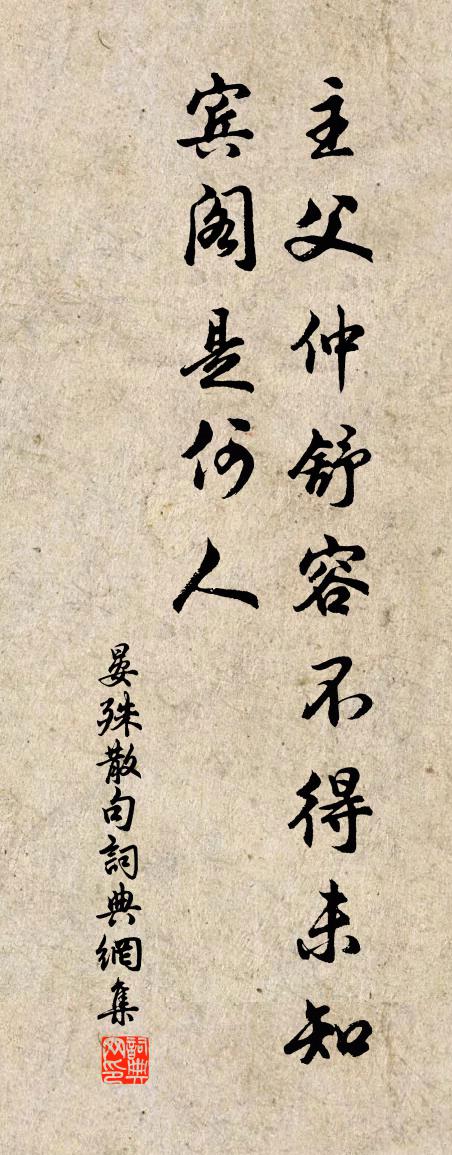 主父仲舒容不得未知
賓閣是何人
晏殊散句詞典網集
詞典网印